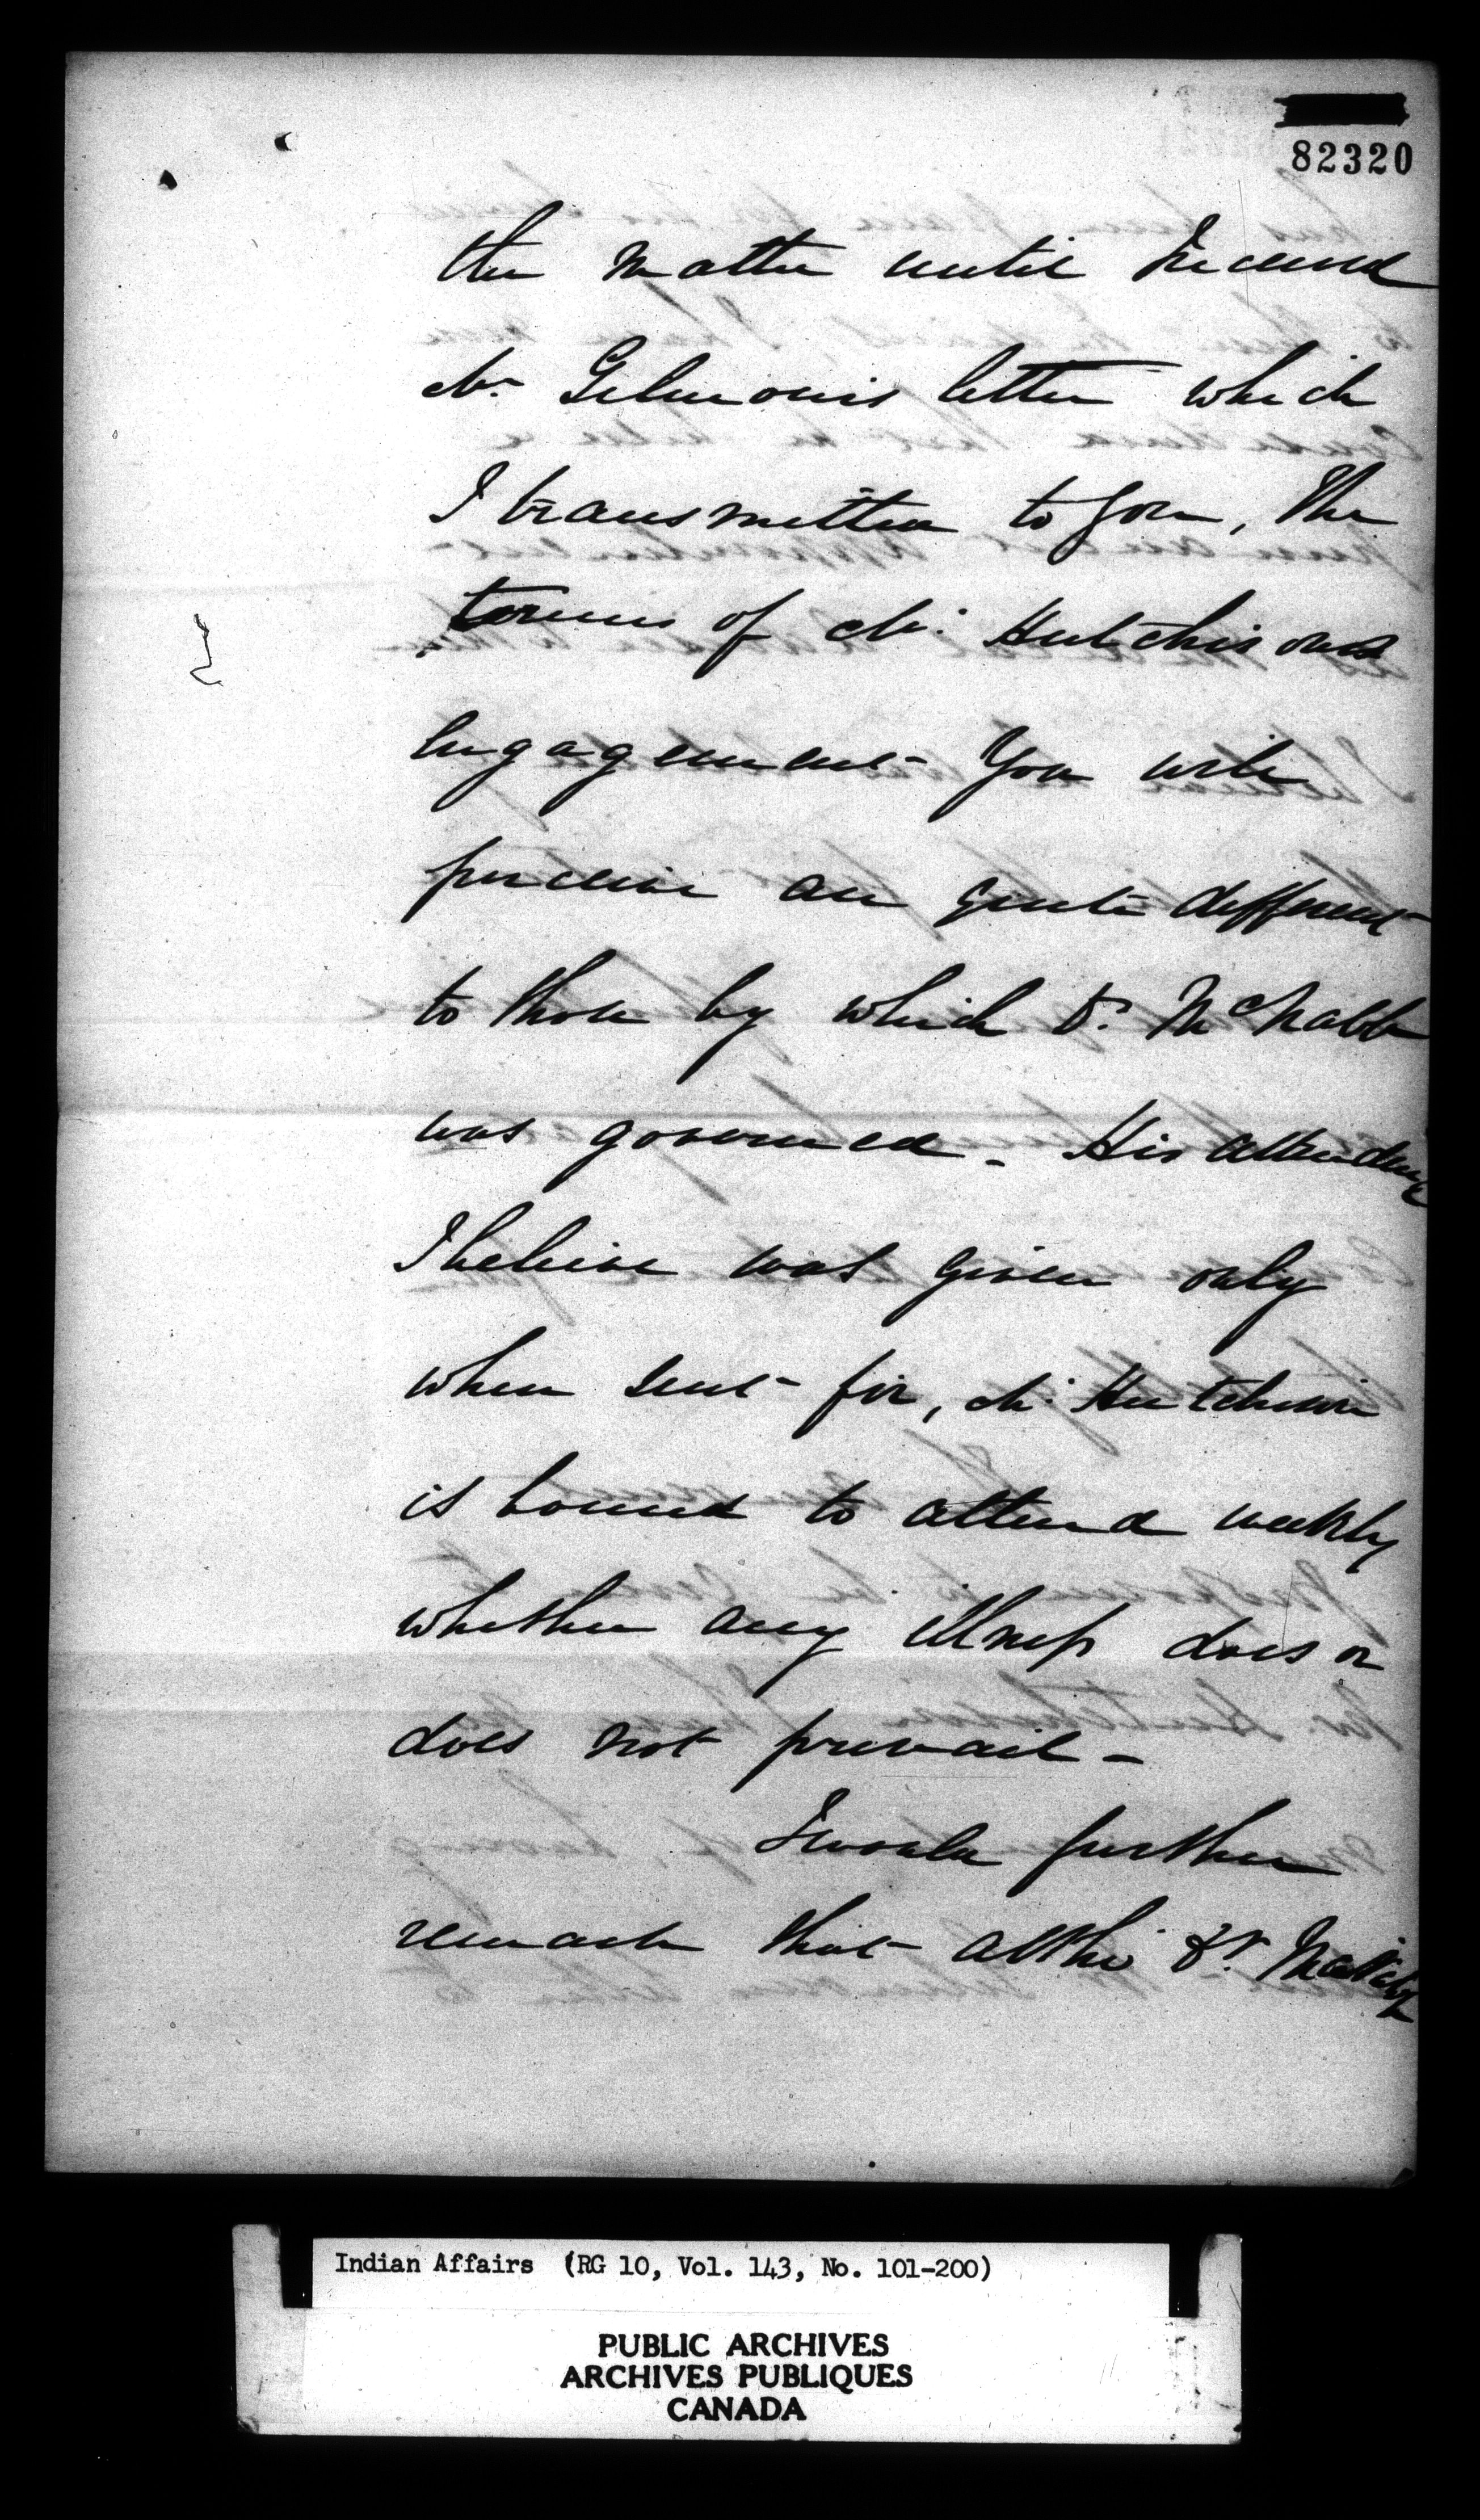 82320
the matter until I received
Mr. Gilmour's letter which
I transmitted to you, The
terms of Mr. Hutchisons
engagement You will
perceive are quite different
to those by which Dr. McNabb
was governed - His attendance
I believe was given only
when sent for, Mr. Hutchison
is bound to attend weekly
whether any illness does or
does not prevail -
I would further
remark that altho' Dr.
Indian Affairs (RG 10, Vol. 143, No. 101-200)
PUBLIC ARCHIVES
ARCHIVES PUBLIQUES
CANADA